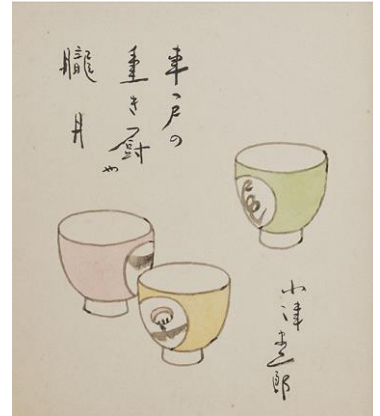 車戸の
重き厨や
朧月
小津安二郎